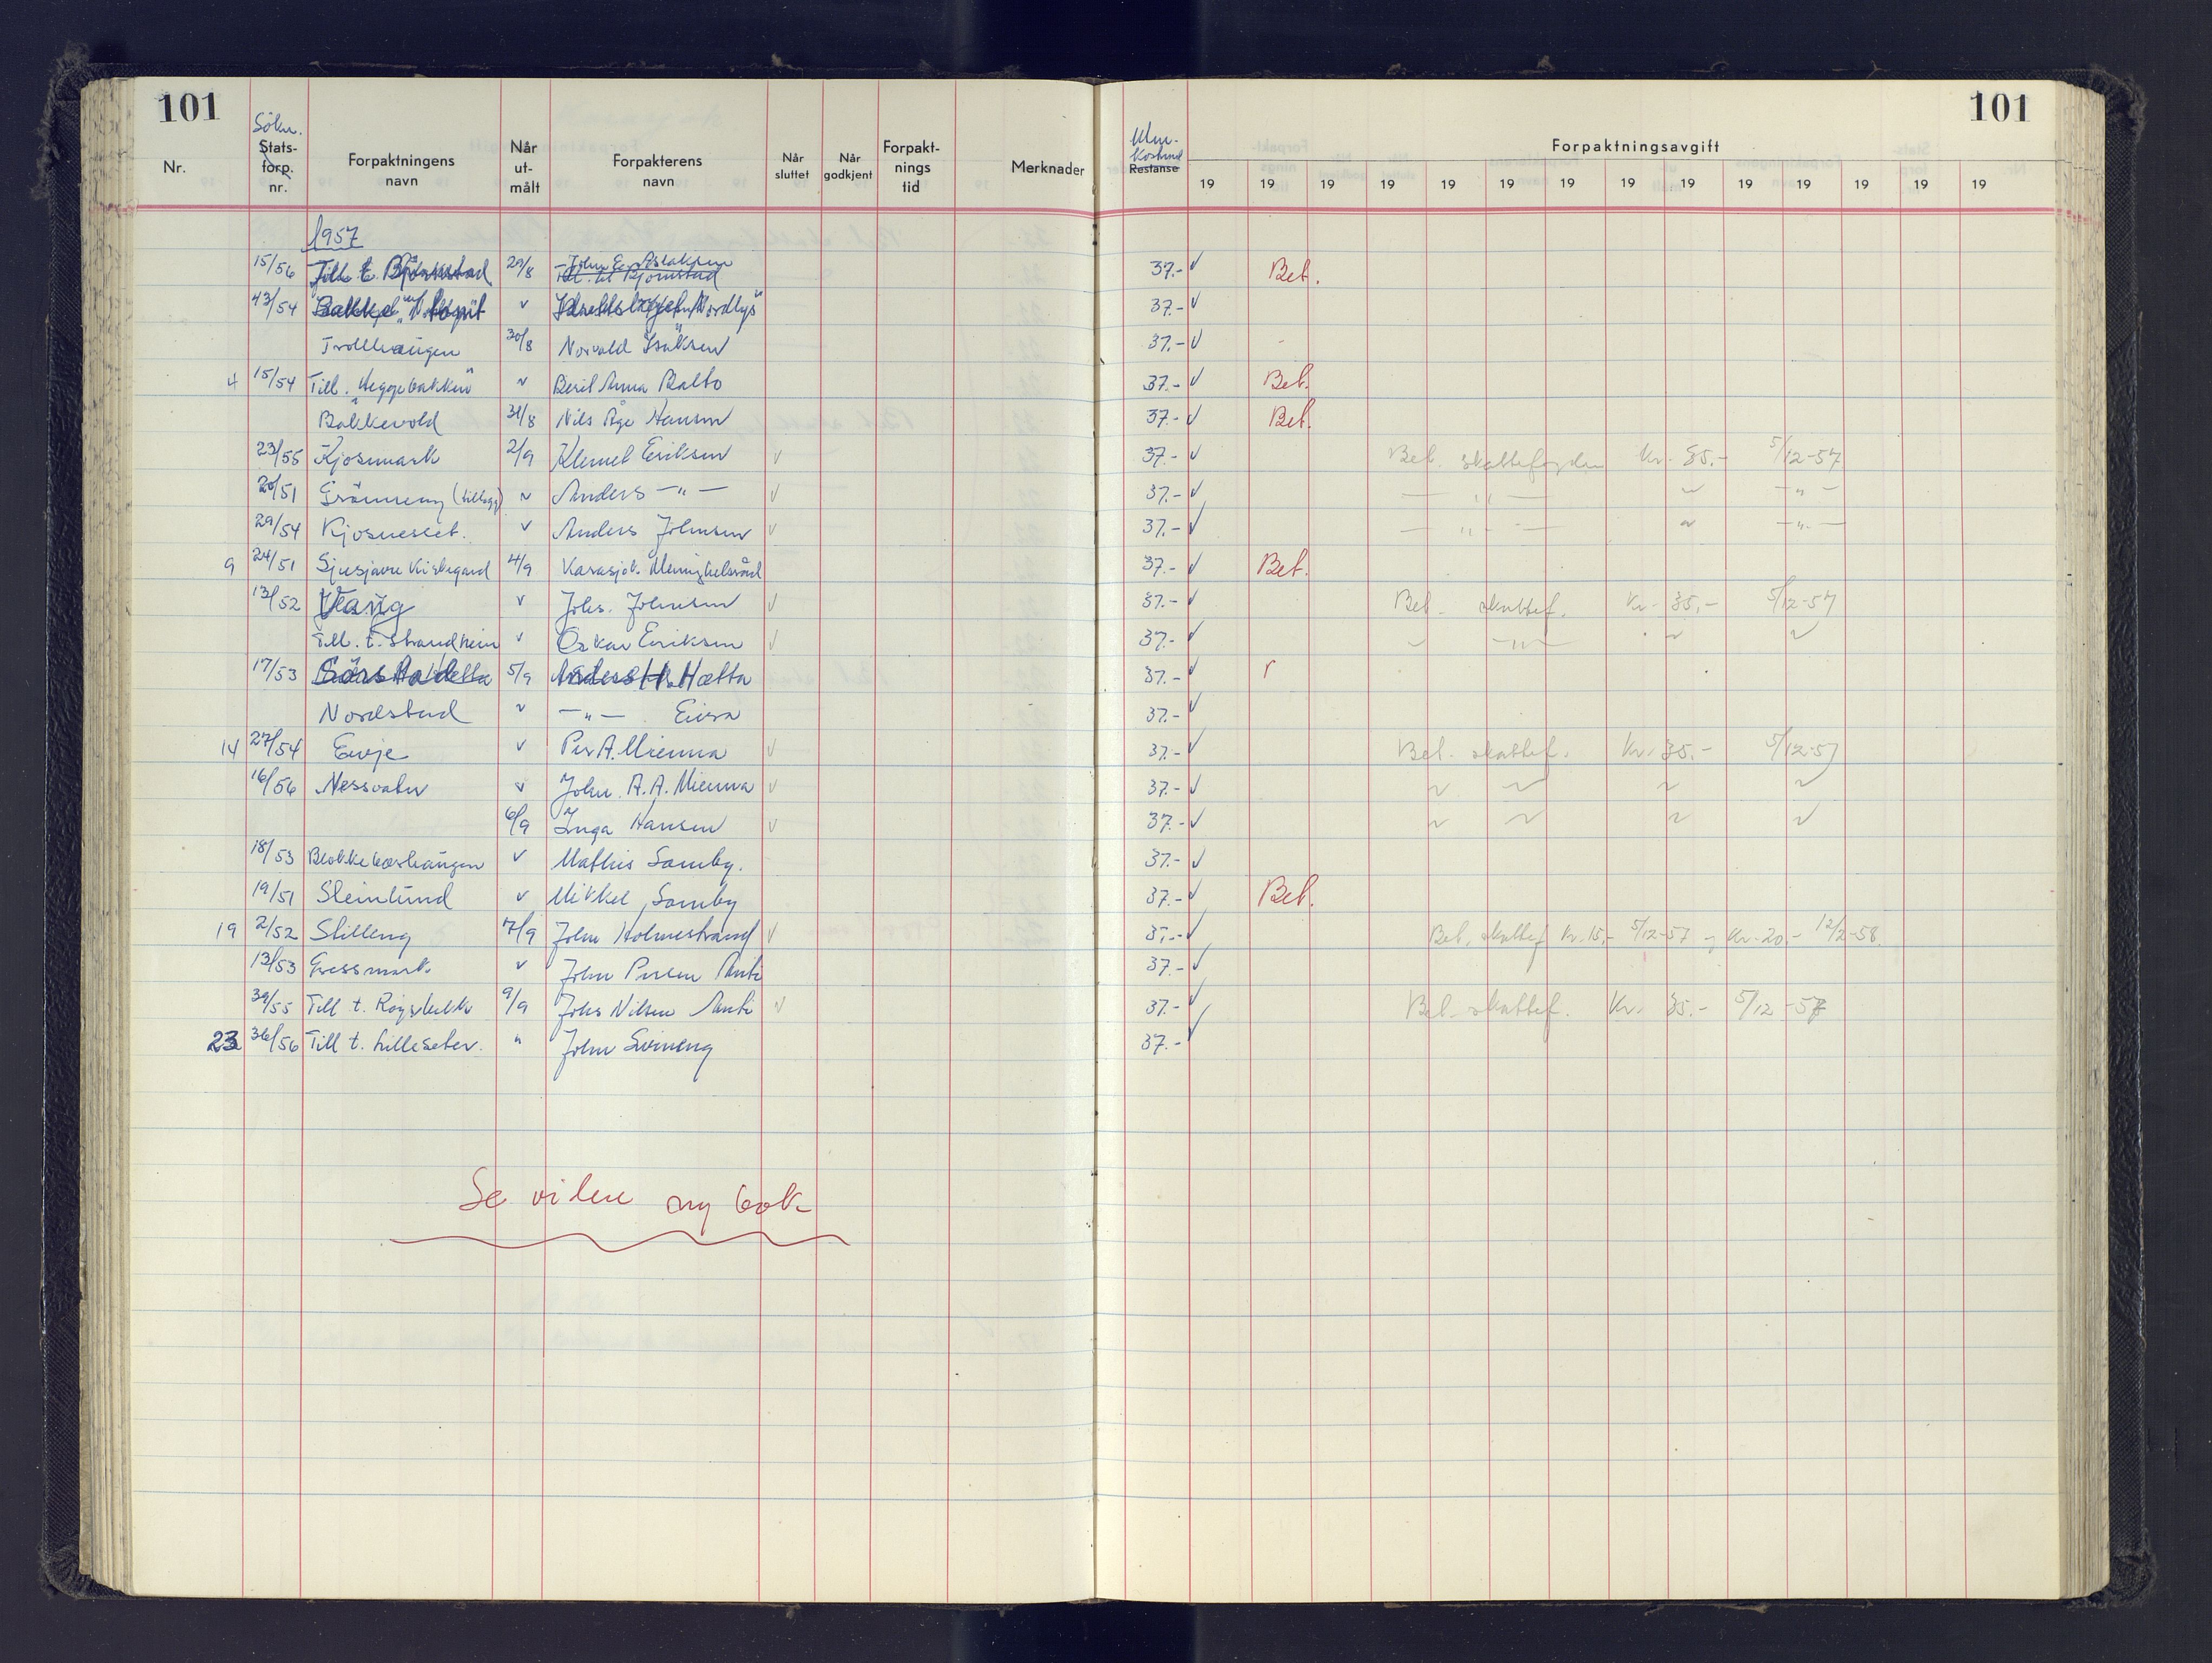 101
101
Nr.
Søkn.
Stats-forp. nr.
Forpaktningens navn
Når ut-målt
Forpakterens navn
Når sluttet
Når godkjent
Forpakt-nings tid
Merknader
Restanse
Forpaktningsavgift
19 19 19 19 19 19 19 19 19 19 19 19 19 19
1957
15/56 Till t. Bjørnstad 29/8 John E. Aslaksen 37.- ✓ Bet.
43/54 Idrettslaget "Nordlys" 37.- ✓
Trollhaugen 30/8 Norvald Isaksen 37.- ✓
4 15/54 Till. "Heggebakken" " Berit Anna Balto 37.- ✓ Bet.
Bakkevold 31/8 Nils Åge Hansen 37.- ✓ Bet.
23/55 Kjosmark 2/9 Klemet Eriksen ✓ 37.- ✓ Bet. skattefogden kr. 35.- 5/12-57
20/51 Grønneng (tillegg) " Anders -"- ✓ 37.- ✓ -"- " -"-
29/54 Kjosnesset. " Anders Johnsen ✓ 37.- ✓ -"- " -"-
9 24/51 Sjusjavre Kirkegård 4/9 Karasjok Menighetsråd 37.- ✓ Bet.
13/52 Vang " Johs. Johnsen ✓ 37.- ✓ Bet. skattef. kr. 35.- 5/12-57
Till. t. Strandheim " Oskar Eriksen ✓ 37.- ✓ " -"- " "
17/53 5/9 Anders H. Hætta 37.- ✓
Nordstad " -"- Eira 37.- ✓
14 27/54 Evje " Per A. Mienna ✓ 37.- ✓ Bet. skattef. kr. 35.- 5/12-57
16/56 Nessvatn " John A. A. Mienna ✓ 37.- ✓ " " " "
6/9 Inga Hansen ✓ 37.- ✓ " " " "
18/53 Blokkebærhaugen " Mathis Somby. 37.- ✓
19/51 Steinlund " Mikkel Somby 37.- ✓ Bet.
19 2/52 Stilleng 7/9 John Holmestrand ✓ 37.- ✓ Bet. skattef kr. 15.- 5/12-57 og kr. 20.- 12/2-58.
13/53 Gressmark " John Persen Anti 37.- ✓
39/55 Till t. Røyskekk 9/9 Johs Nilsen Anti ✓ 37.- ✓ Bet. skattef. kr. 35.- 5/12-57
23 36/56 Till t. Lilleseter. " John Svineng 37.- ✓
Se videre ny bok